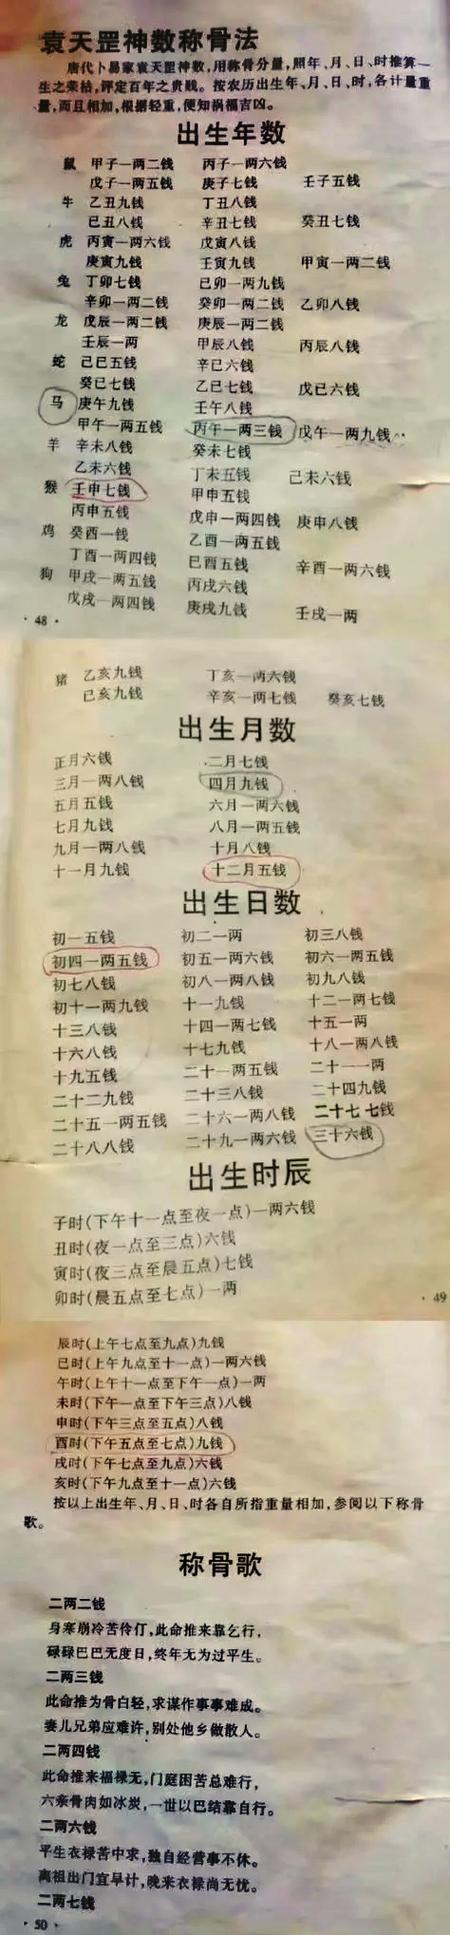 袁天罡神数称骨法
唐代卜易家袁天罡神数,用称骨分量,照年、月、日、时推算一
生之荣枯,评定百年之贵贱。按农历出生年、月、日、时,各计量重
量,而且相加,根据轻重,便知祸福吉凶。
出生年数
鼠 甲子一两二钱 丙子一两六钱
戊子一两五钱 庚子七钱 壬子五钱
牛 乙丑九钱 丁丑八钱
己丑八钱 辛丑七钱 癸丑七钱
虎 丙寅一两六钱 戊寅八钱
庚寅九钱 壬寅九钱 甲寅一两二钱
兔 丁卯七钱 己卯一两九钱
辛卯一两二钱 癸卯一两二钱 乙卯八钱
龙 戊辰一两二钱 庚辰一两二钱
壬辰一两 甲辰八钱 丙辰八钱
蛇 己巳五钱 辛巳六钱
癸巳七钱 乙巳七钱 戊巳六钱
马 庚午九钱 壬午八钱
甲午一两五钱 丙午一两三钱 戊午一两九钱
羊 辛未八钱 癸未七钱
乙未六钱 丁未五钱 己未六钱
猴 壬申七钱 甲申五钱
丙申五钱 戊申一两四钱 庚申八钱
鸡 癸酉一钱 乙酉一两五钱
丁酉一两四钱 己酉五钱 辛酉一两六钱
狗 甲戌一两五钱 丙戌六钱
戊戌一两四钱 庚戌九钱 壬戌一两
·48·
猪 乙亥九钱 丁亥一两六钱
己亥九钱 辛亥一两七钱 癸亥七钱
出生月数
正月六钱 二月七钱
三月一两八钱 四月九钱
五月五钱 六月一两六钱
七月九钱 八月一两五钱
九月一两八钱 十月八钱
十一月九钱 十二月五钱
出生日数
初一五钱 初二一两 初三八钱
初四一两五钱 初五一两六钱 初六一两五钱
初七八钱 初八一两八钱 初九八钱
初十一两九钱 十一九钱 十二一两七钱
十三八钱 十四一两七钱 十五一两
十六八钱 十七九钱 十八一两八钱
十九五钱 二十一两五钱 二十一一两
二十二九钱 二十三八钱 二十四九钱
二十五一两五钱 二十六一两八钱 二十七七钱
二十八八钱 二十九一两六钱 三十六钱
出生时辰
子时(下午十一点至夜一点)一两六钱
丑时(夜一点至三点)六钱
寅时(夜三点至晨五点)七钱
卯时(晨五点至七点)一两
·49
辰时(上午七点至九点)九钱
巳时(上午九点至十一点)一两六钱
午时(上午十一点至下午一点)一两
未时(下午一点至下午三点)八钱
申时(下午三点至五点)八钱
酉时(下午五点至七点)九钱
戌时(下午七点至九点)六钱
亥时(下午九点至十一点)六钱
按以上出生年、月、日、时各自所指重量相加,参阅以下称骨
歌。
称骨歌
二两二钱
身寒崩冷苦伶仃,此命推来靠乞行,
碌碌巴巴无度日,终年无为过平生。
二两三钱
此命推为骨白轻,求谋作事事难成。
妻儿兄弟应难许,别处他乡做散人。
二两四钱
此命推来福禄无,门庭困苦总难行,
六亲骨肉如冰炭,一世以巴结靠自行。
二两六钱
平生衣禄苦中求,独自经营事不休。
离祖出门宜早计,晚来衣禄尚无忧。
二两七钱
·50·